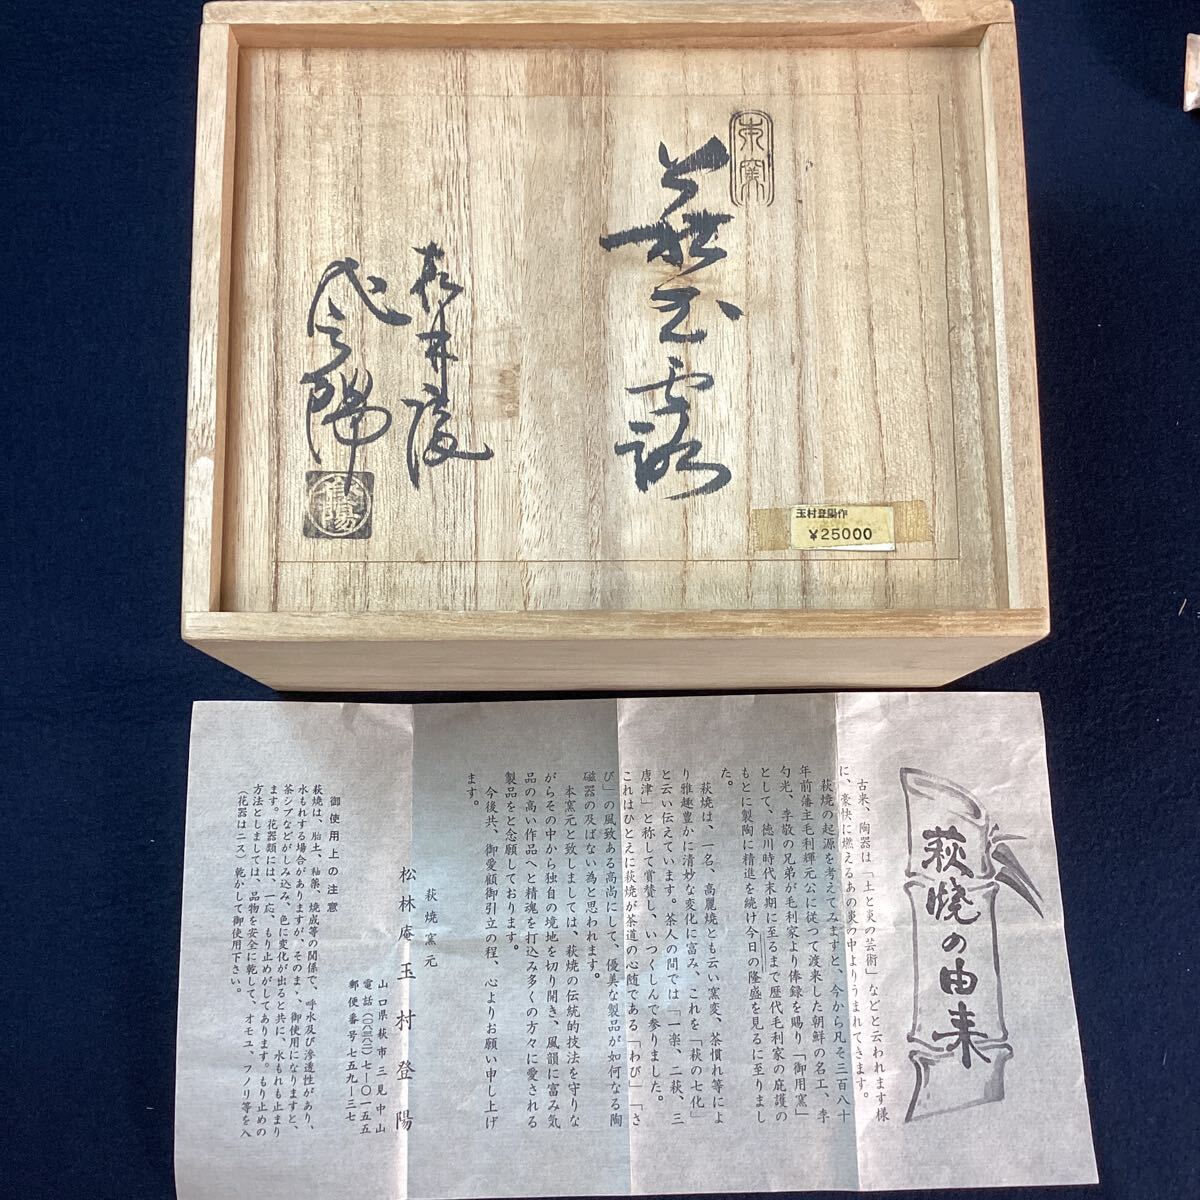 萩玉露
松林庵
登陽
玉村登陽作
¥25000
萩焼の由来
古来、陶器は「土と炎の芸術」などと云われます様
に、豪快に燃えるあの炎の中よりうまれてきます。
萩焼の起源を考えてみますと、今から凡そ三百八十
年前藩主毛利輝元公に従って渡来した朝鮮の名工、李
勺光、李敬の兄弟が毛利家より俸録を賜り「御用窯」
として、徳川時代末期に至るまで歴代毛利家の庇護の
もとに製陶に精進を続け今日の隆盛を見るに至りまし
た。
萩焼は、一名、高麗焼とも云い窯変、茶慣れ等によ
り雅趣豊かに清妙な変化に富み、これを「萩の七化」
と云い伝えています。茶人の間では「一楽、二萩、三
唐津」と称して賞賛し、いつくしんで参りました。
これはひとえに萩焼が茶道の心随である「わび」「さ
び」の風致ある高尚にして、優美な製品が如何なる陶
磁器の及ばない為と思われます。
本窯元と致しましては、萩焼の伝統的技法を守りな
がらその中から独自の境地を切り開き、風韻に富み気
品の高い作品へと精魂を打込み多くの方々に愛される
製品をと念願しております。
今後共、御愛顧御引立の程、心よりお願い申し上げ
ます。
萩焼窯元
松林庵 玉村登陽
山口県萩市三見中山
電話(〇八三八二)七―〇一五五
郵便番号七五九―三七
御使用上の注意
萩焼は、胎土、釉薬、焼成等の関係で、呼水及び滲透性があり、
水もれする場合がありますが、そのまゝ、御使用になりますと、
茶シブなどがしみ込み、色に変化が出ると共に、水もれも止まり
ます。花器類には、一応、もり止めがしてあります。もり止めの
方法としましては、品物を安全に乾して、オモユ、フノリ等を入
(花器はニス)乾かして御使用下さい。